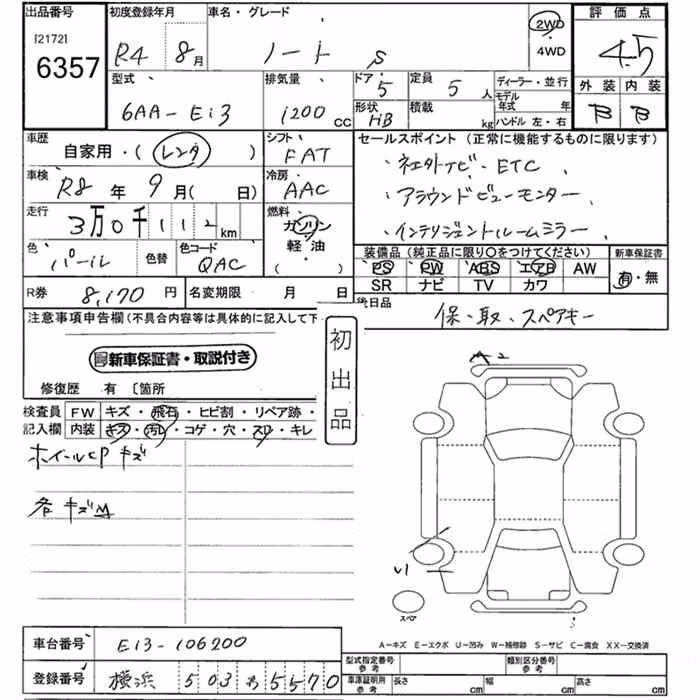 出品番号 初度登録年月 車名・グレード 2WD 評価点
[2172] 6357 R4 8月 ノート S 4WD 4.5
型式 排気量 ドア 5 定員 5人 ディーラー・並行 外装 内装
6AA-E13 1200 CC 形状 HB 積載 kg モデル年式 年 B B
ハンドル 左・右
車歴 自家用・(レンタ) シフト FAT セールスポイント (正常に機能するものに限ります)
・ネエ外ナビ・ETC
車検 R8年 9月(日) 冷房 AAC ・アラウンドビューモニター
走行 3万0千112km 燃料 ガソリン 軽油 ( ) ・インテリジェントルームミラー
色 パール 色替 色コード QAC 装備品 (純正品に限り○をつけてください) 新車保証書
PS PW ABS エアB AW 有・無
SR ナビ TV カワ
R券 8,170円 名変期限 月 日 後日品
保・取・スペアキー
注意事項申告欄(不具合内容等は具体的に記入して下
新車保証書・取説付き
初出品
修復歴 有 〔箇所
A2
検査員 FW キズ・飛石・ヒビ割・リペア跡・
記入欄 内装 キズ・汚レ・コゲ・穴・スレ・キレ
ホイールCPキズ
各キズM
U1
スペア
A-キズ E-エクボ U-凹み W-補修跡 S-サビ C-腐食 XX-交換済
車台番号 E13-106200
型式指定番号 参考 類別区分番号 参考
登録番号 横浜 503 わ 5570 車庫証明用 参考 長さ cm 幅 cm 高さ cm